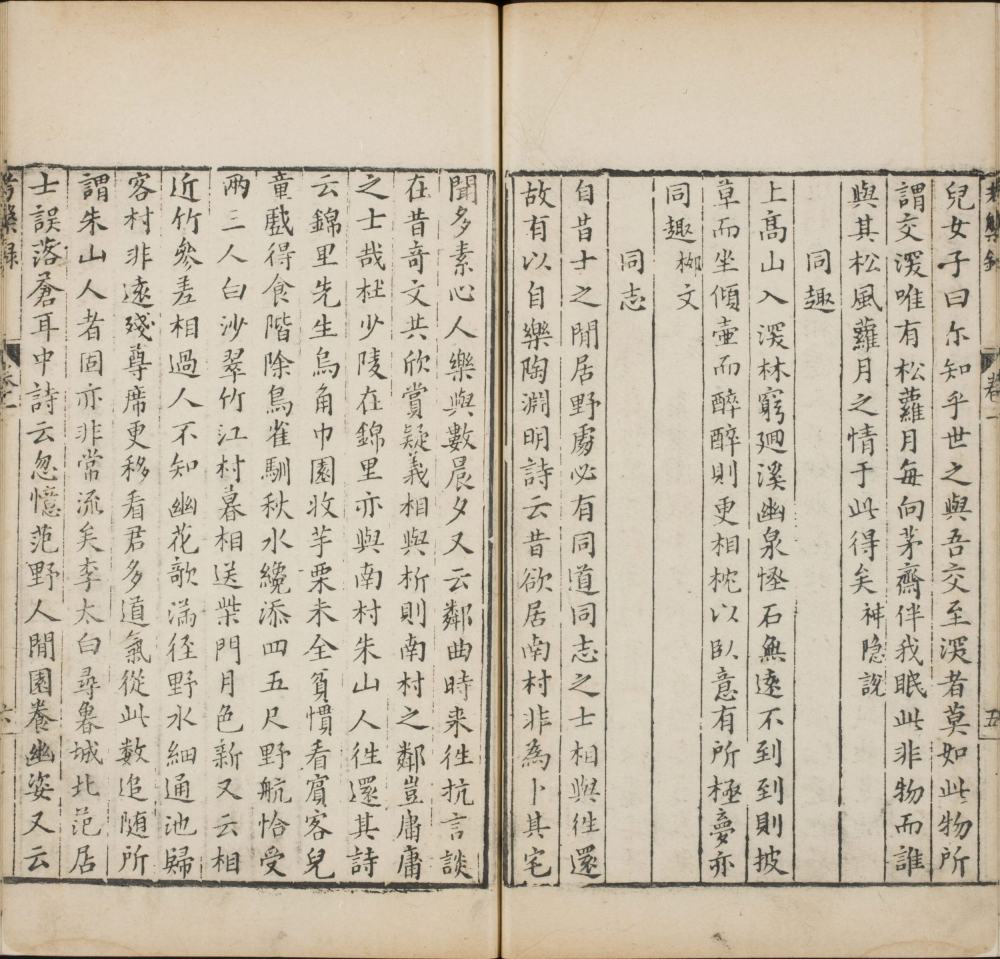 兒女子曰尒知乎世之與吾交至深者莫如此物所
謂交深唯有松蘿月每向茅齋伴我眠此非物而誰
與其松風蘿月之情于此得矣神隐說
同趣
上高山入深林窮廻溪幽泉怪石無遠不到到則披
草而坐傾壷而醉醉則更相枕以臥意有所極夢亦
同趣栁文
同志
自昔士之閒居野處必有同道同志之士相與徃還
故有以自樂陶淵明詩云昔欲居南村非為卜其宅
聞多素心人樂與數晨夕又云鄰曲時来徃抗言談
在昔奇文共欣賞疑義相與析則南村之鄰豈庸庸
之士哉杜少陵在錦里亦與南村朱山人徃還其詩
云錦里先生烏角巾園收芋栗未全貧慣看賔客兒
童戱得食階除鳥雀馴秋水纔添四五尺野航恰受
兩三人白沙翠竹江村暮相送柴門月色新又云相
近竹參差相過人不知幽花歌滿徑野水細通池歸
客村非遠殘尊席更移看君多道氣從此數追随所
謂朱山人者固亦非常流矣李太白尋魯城北范居
士誤落蒼耳中詩云忽憶范野人閒園養幽姿又云
卷一
五
六